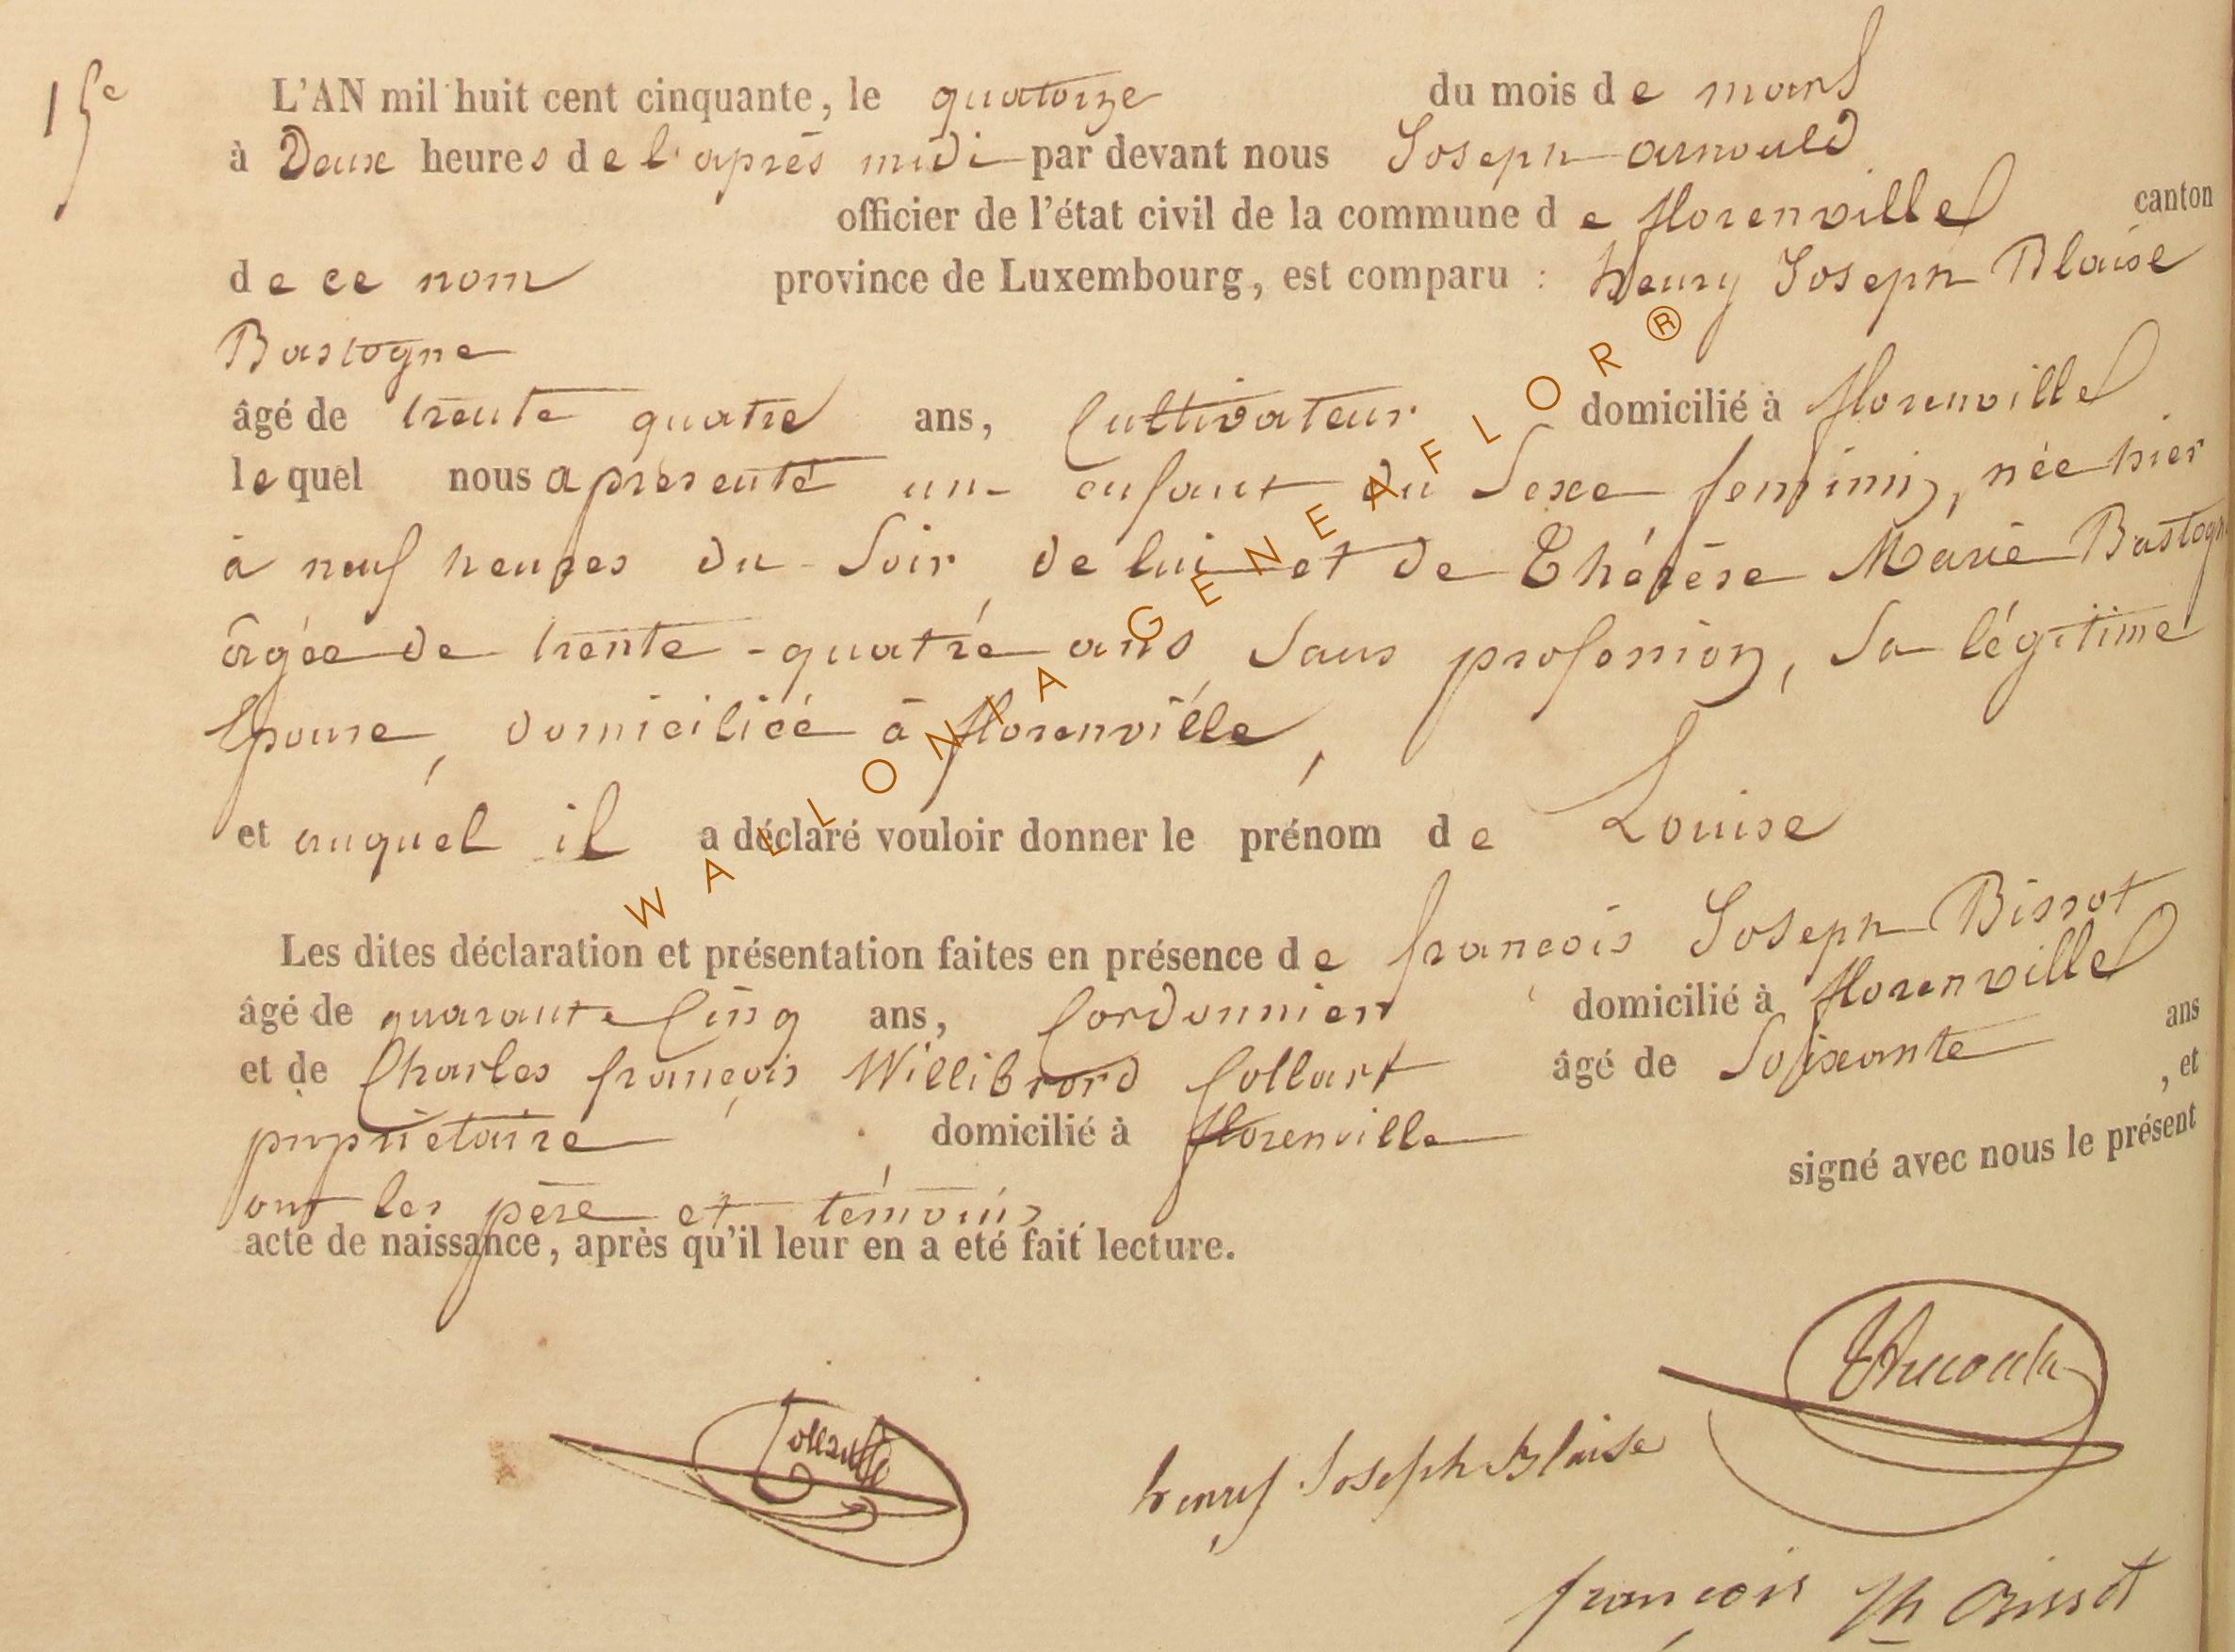 15e
L'AN mil huit cent cinquante, le quatorze du mois de mars
à Deux heures de l'après midi par devant nous Joseph arnould
officier de l'état civil de la commune de florenville canton
de ce nom province de Luxembourg, est comparu : henry Joseph Blaise
Bastogne
âgé de trente quatre ans, Cultivateur domicilié à florenville
lequel nous a présenté un enfant du Sexe feminin, née hier
à neuf heures du Soir, de lui et de Thérèse Marie Bastogne
âgée de trente-quatre ans, Sans profession, Sa légitime
Epouse, domiciliée à florenville,
et auquel il a déclaré vouloir donner le prénom de Louise
Les dites déclaration et présentation faites en présence de françois Joseph Bissot
âgé de quarante Cinq ans, Cordonnier domicilié à florenville
et de Charles françois Willibrord Collart âgé de Soixante ans
propriétaire domicilié à florenville , et
ont les père et témoins signé avec nous le présent
acte de naissance, après qu'il leur en a eté fait lecture.
Collart
henry Joseph Blaise
françois Jh Bissot
WALLONIA GENEAFLOR®